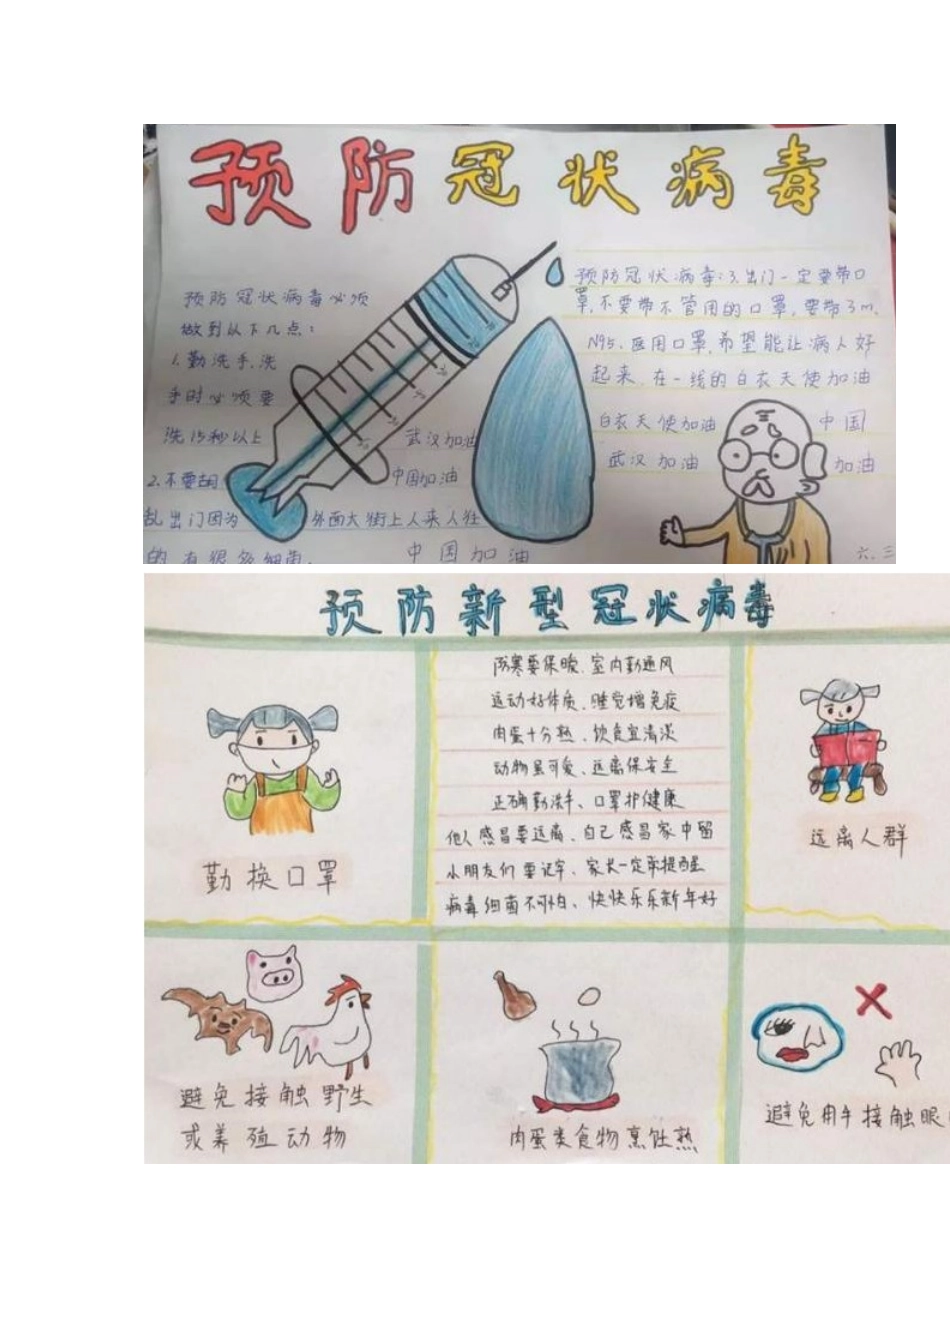 预防冠状病毒
预防冠状病毒必须
做到以下几点：
1.勤洗手，洗
手时必须要
洗15秒以上
2.不要胡
乱出门因为外面大街上人来人往
的，有很多细菌。
武汉加油
中国加油
中国加油
预防冠状病毒：3.出门一定要带口
罩，不要带不管用的口罩，要带3m，
N95，医用口罩，希望能让病人好
起来，在一线的白衣天使加油
白衣天使加油 中国
武汉加油 加油
六、三
预防新型冠状病毒
防寒要保暖、室内勤通风
运动好体质、睡觉增免疫
肉蛋十分熟、饮食宜清淡
动物虽可爱、远离保安全
正确勤洗手、口罩护健康
他人感冒要远离、自己感冒家中留
小朋友们要记牢、家长一定来提醒
病毒细菌不可怕、快快乐乐新年好
勤换口罩
远离人群
避免接触野生
或养殖动物
肉蛋类食物烹饪熟
避免用手接触眼